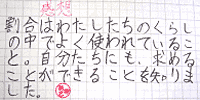 感想
割合はわたしたちのくらし
の中でよく使われているこ
と。自分たちにも、求める
ことができることを知りま
した。